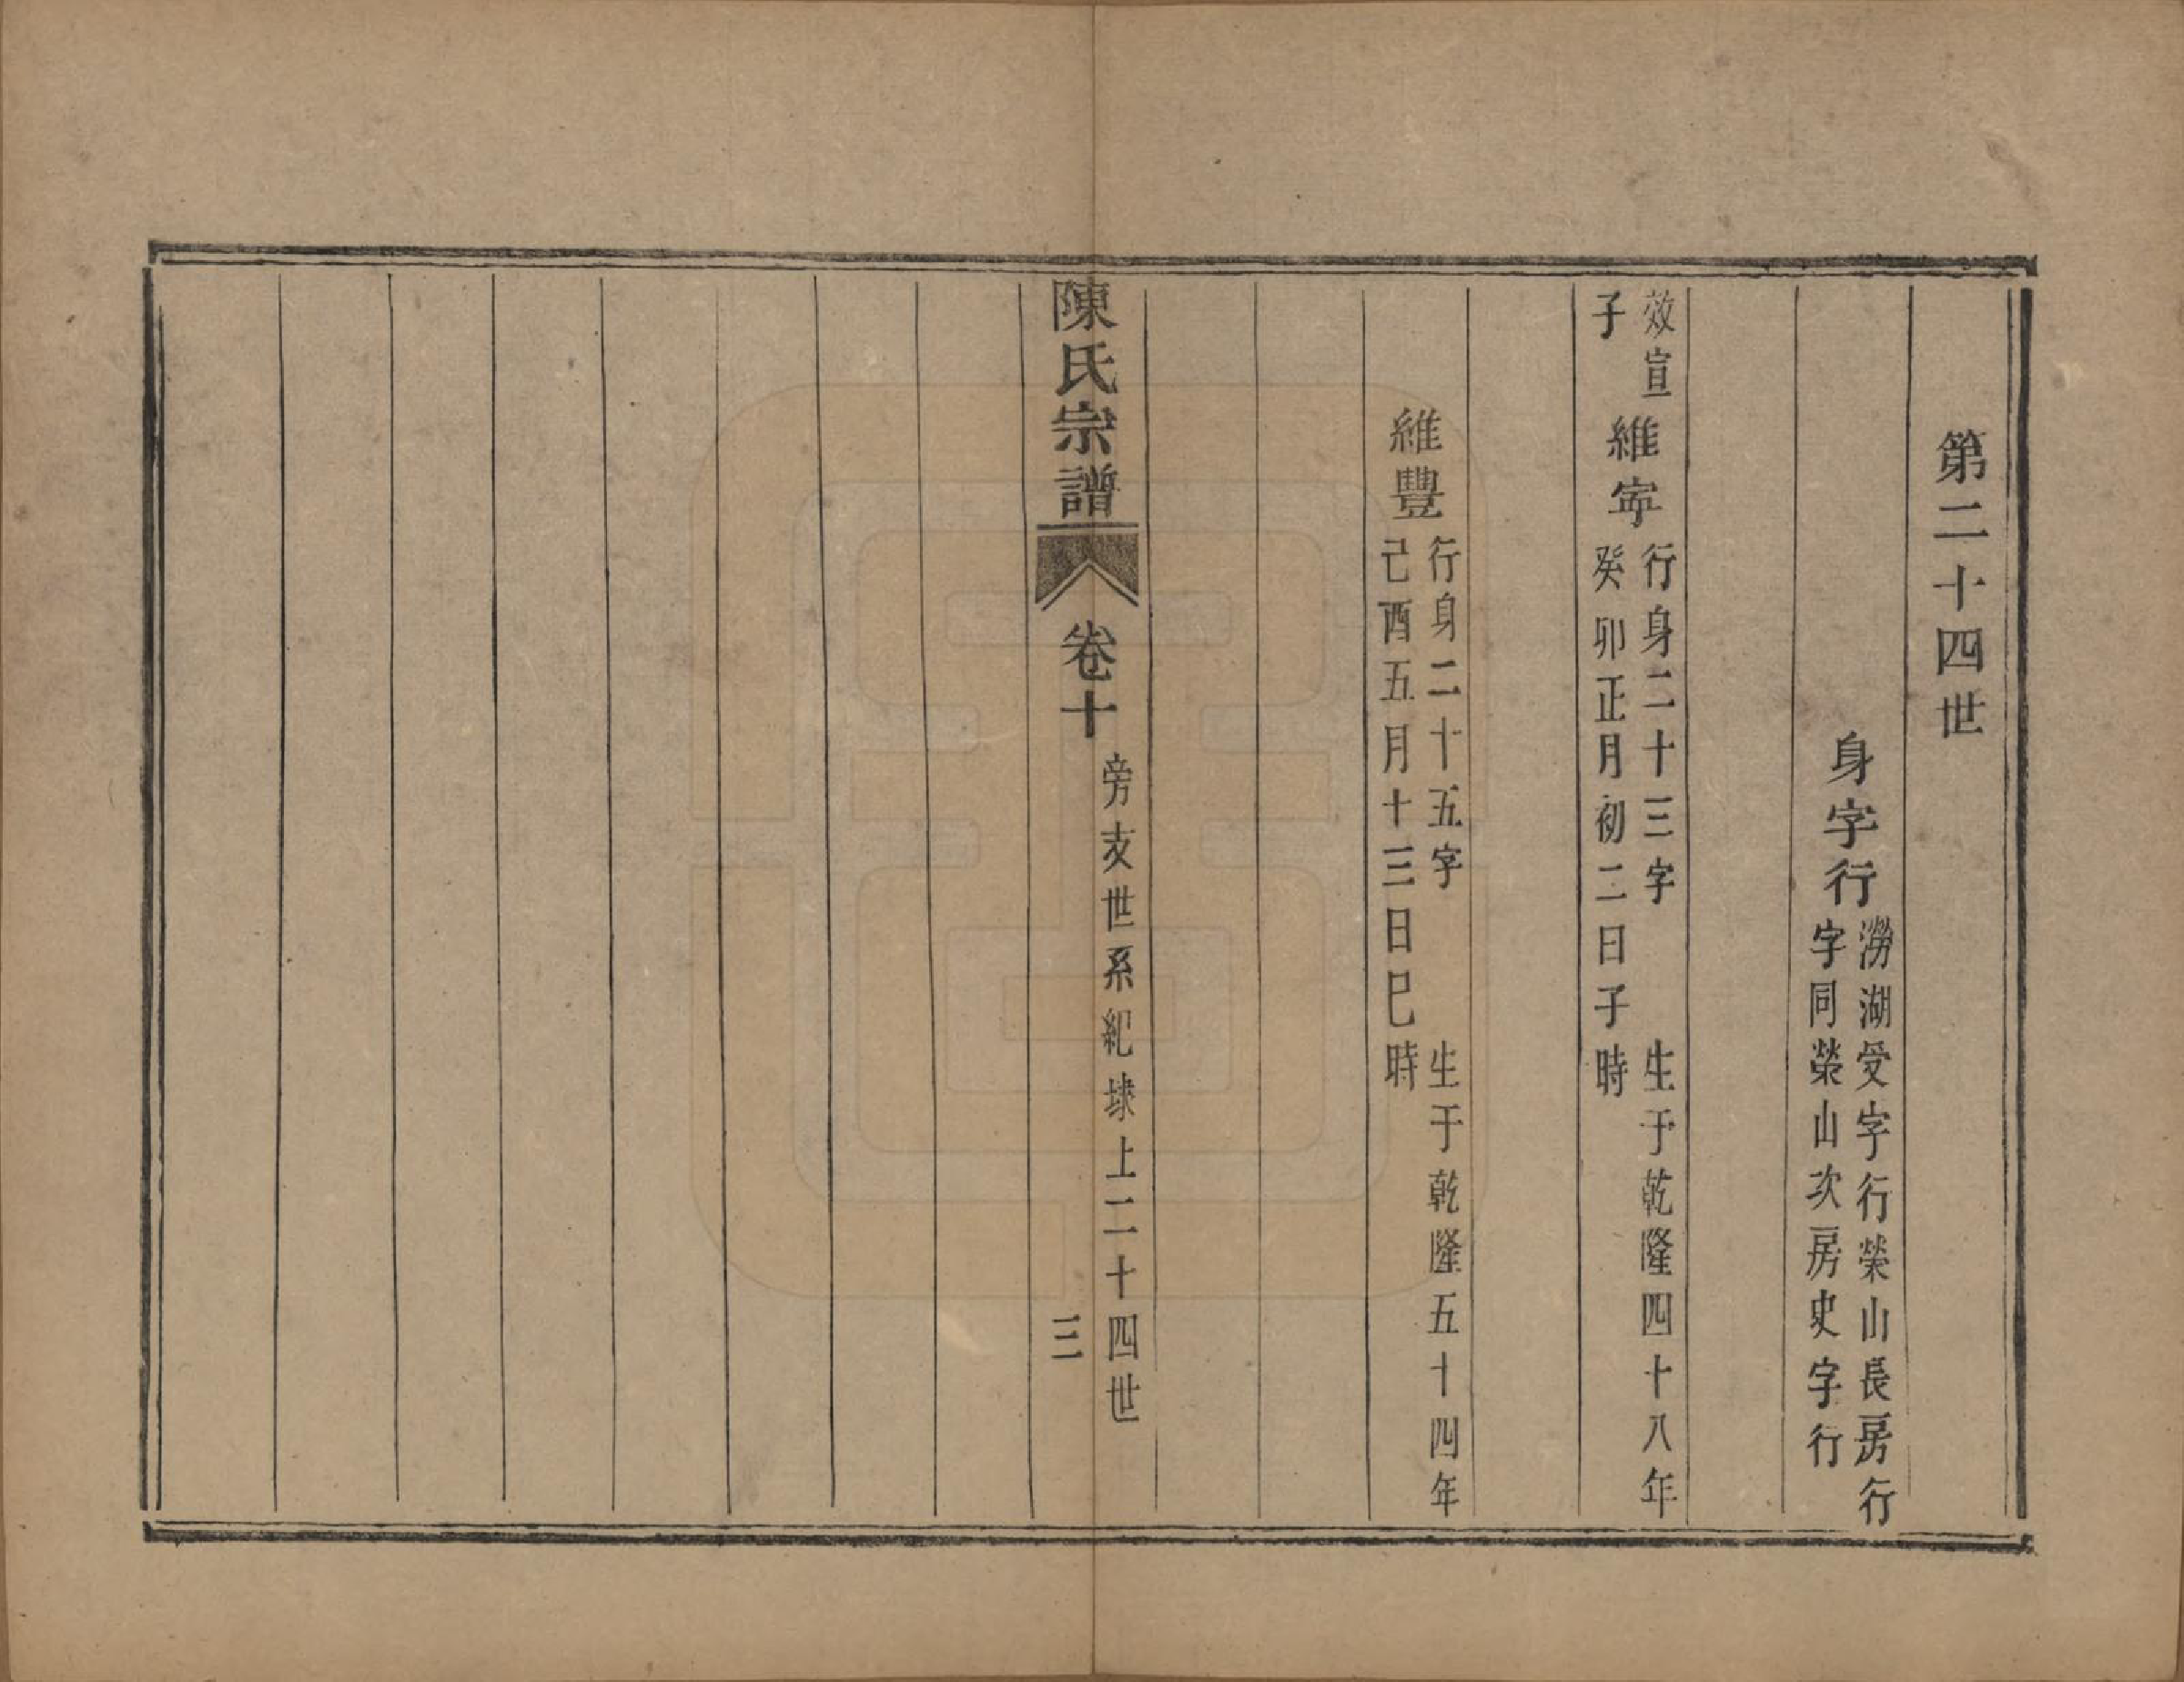 第二十四世
身字行
澇湖受字行榮山長房行
字同榮山次房史字行
效宣
子
維寧
行身二十三字　生于乾隆四十八年
癸卯正月初二日子時
維豐
行身二十五字　生于乾隆五十四年
己酉五月十三日巳時
陳氏宗譜
卷十
旁支世系紀埭上二十四世
三